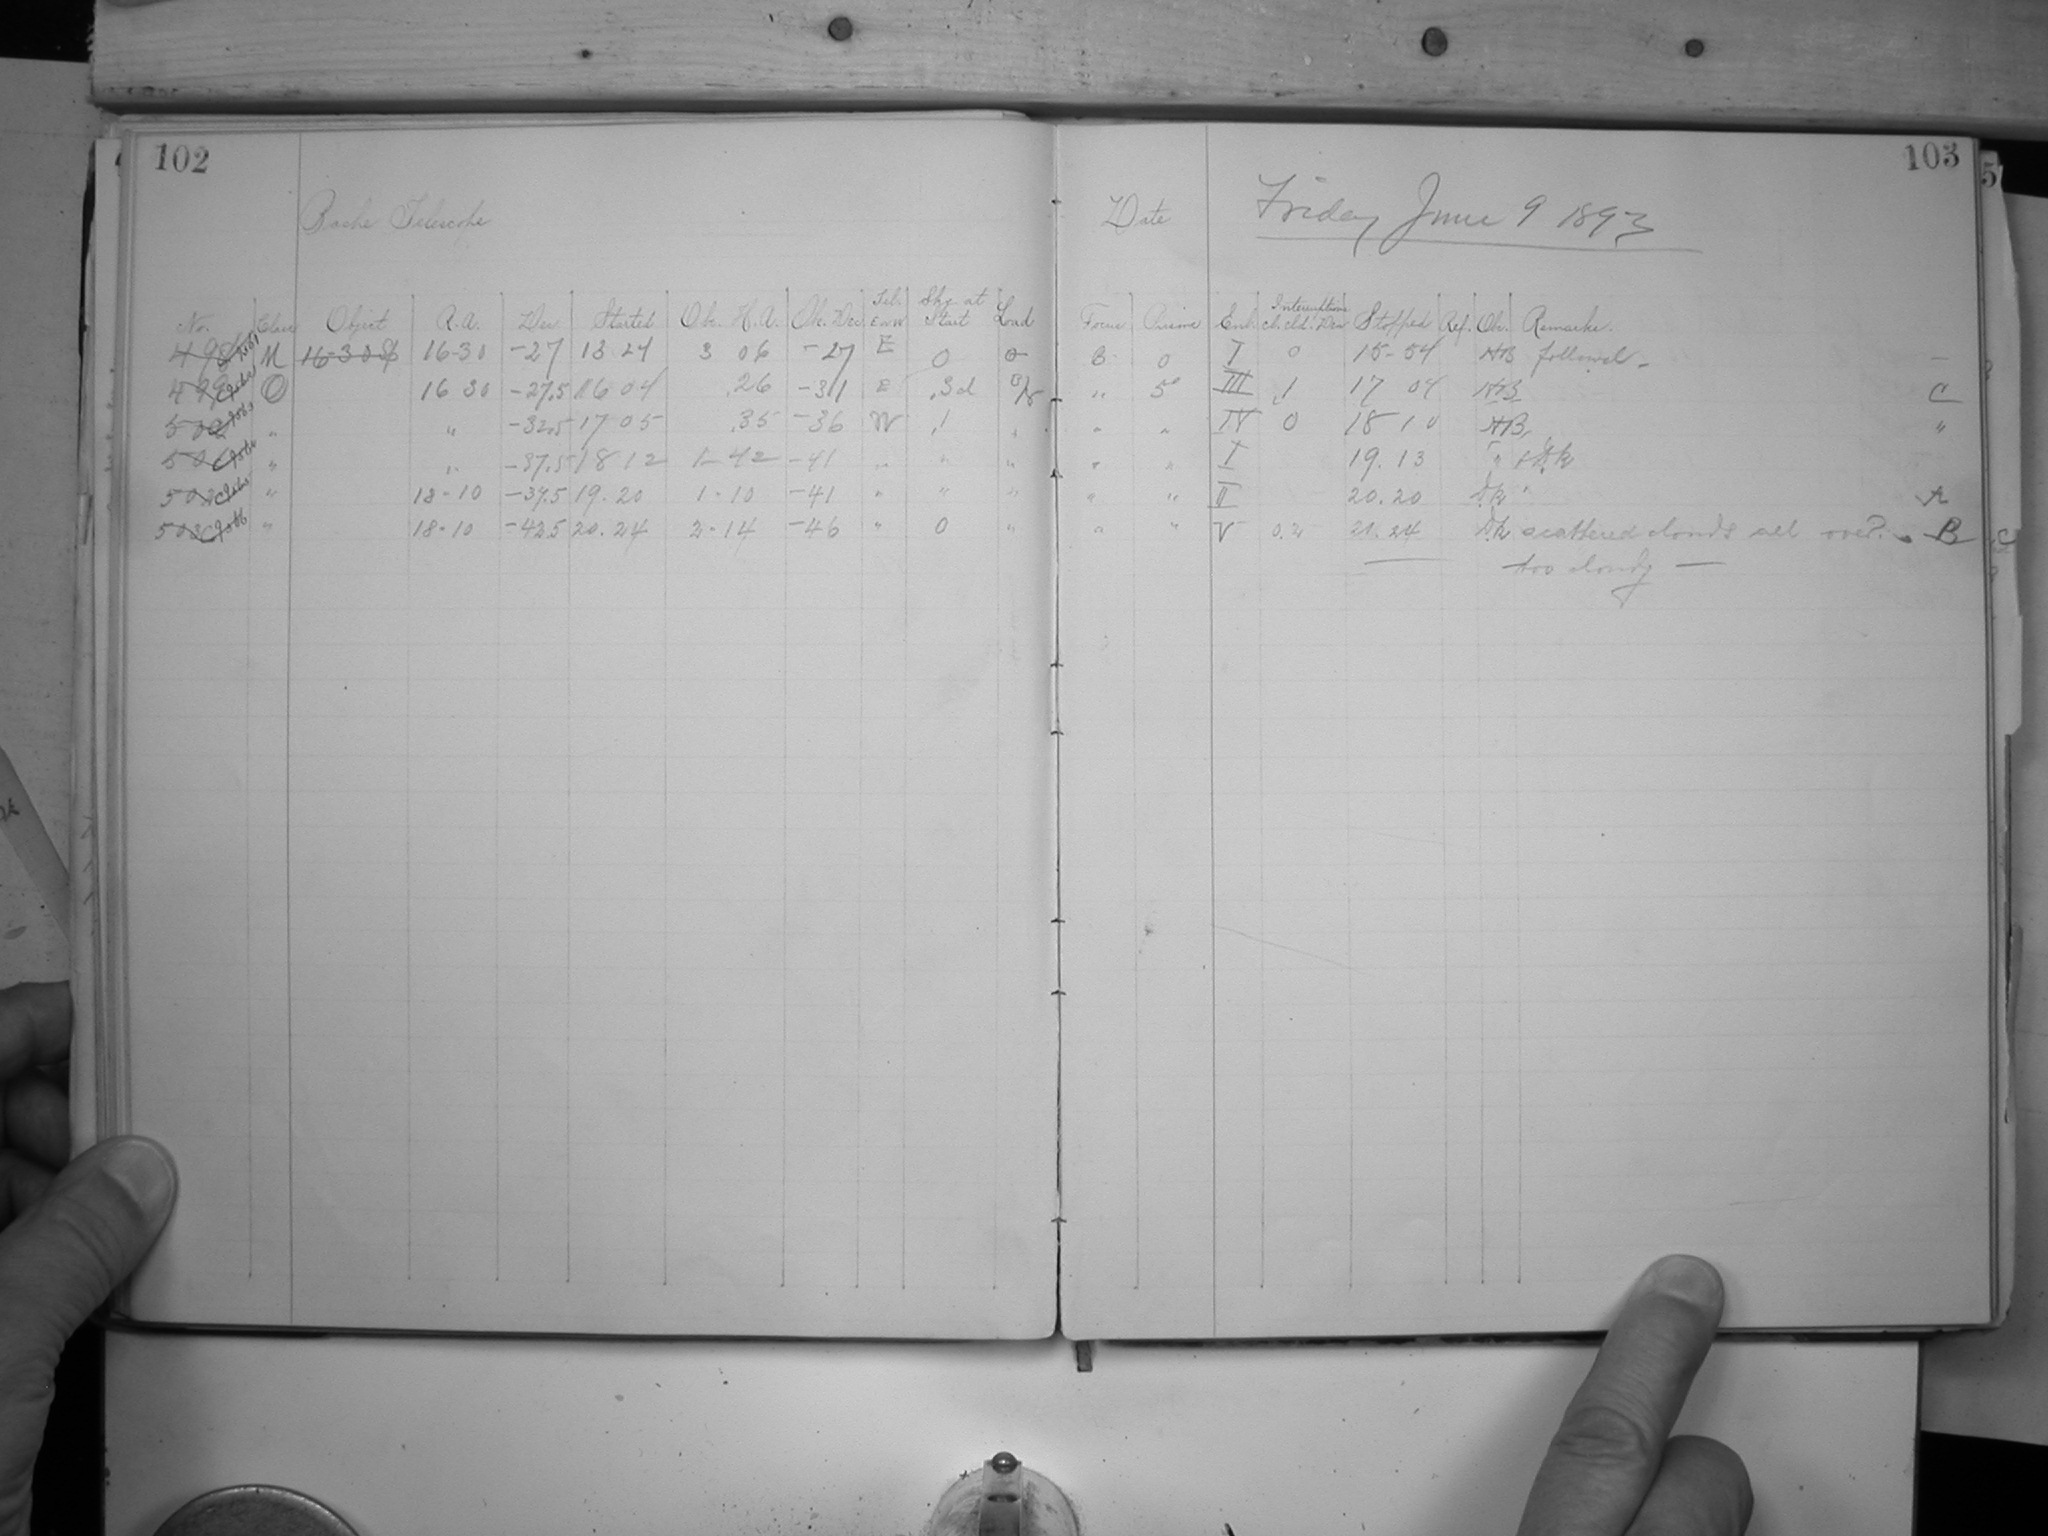 102
Bache Telescope
No. Class Object R.A. Dec Started Obs. H.A. Obs. Dec Tel. E or W Sky at Start Load
498 M 16-30 16-30 -27 13 24 3 06 -27 E 0 0
499 O 16 30 -27.5 16 04 .26 -31 E .3d
500 " " -32.5 17 05 .35 -36 W .1 "
501 " " -37.5 18 12 1-42 -41 " " "
502 " 18-10 -37.5 19.20 1-10 -41 " " "
503 " 18-10 -42.5 20.24 2-14 -46 " 0 "
103
Date Friday June 9 1893
Focus Prism Enl. Interruptions cl. cld. Dew Stopped Ref. Ob. Remarks.
B 0 I 0 15-54 HB followed -
" 5° III .1 17 04 HB C
" " IV 0 18 10 HB "
" " I 19.13 "
" " II 20.20 A
" " V 0.2 21.24 scattered clouds all over. B
too cloudy —